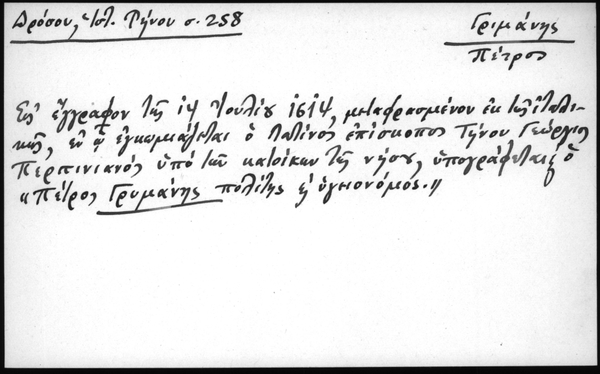 Δρόσου, Ἱστ. Τήνου σ. 258
Γριμάνης
Πέτρος
Εἰς ἔγγραφον τῆς 14 Ἰουλίου 1614, μεταφρασμένον ἐκ τῆς ἰταλι-
κῆς, ἐν ᾧ ἐγκωμιάζεται ὁ λατῖνος ἐπίσκοπος Τήνου Γεώργιος
Περπινιανός ὑπό τῶν κατοίκων τῆς νήσου, ὑπογράφεται ὁ
«Πέτρος Γρυμάνης πολίτης ὑγειονόμος.»